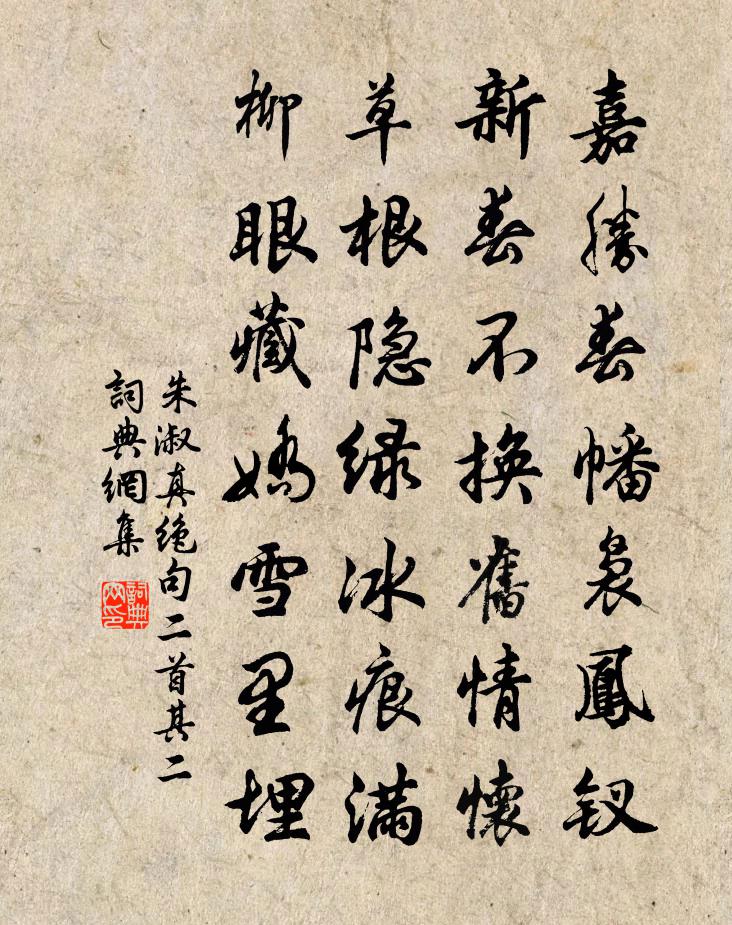 嘉勝春幡裊鳳釵
新春不換舊情懷
草根隐緑冰痕满
柳眼藏嬌雪里埋
朱淑真绝句二首其二
詞典網集
詞典网印